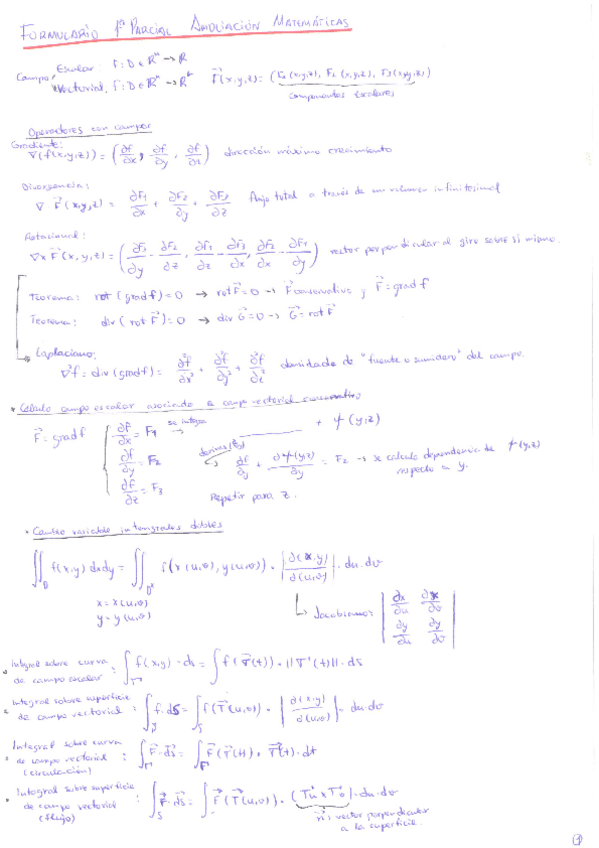 FORMULARIO 1er PARCIAL AMPLIACIÓN MATEMÁTICAS
Campo
Escalar: f: D ∈ ℝⁿ → ℝ
Vectorial: F: D ∈ ℝⁿ → ℝᵏ F⃗(x,y,z) = (F₁(x,y,z), F₂(x,y,z), F₃(x,y,z))
componentes escalares
Operadores con campos
Gradiente:
∇(f(x,y,z)) = (∂f/∂x, ∂f/∂y, ∂f/∂z) dirección máximo crecimiento
Divergencia:
∇ F⃗(x,y,z) = ∂F₁/∂x + ∂F₂/∂y + ∂F₃/∂z flujo total a través de un volumen infinitesimal
Rotacional:
∇x F⃗(x,y,z) = (∂F₃/∂y - ∂F₂/∂z, ∂F₁/∂z - ∂F₃/∂x, ∂F₂/∂x - ∂F₁/∂y) vector perpendicular al giro sobre si mismo.
Teorema: rot(grad f) = 0 → rot F⃗ = 0 → F⃗ conservativo y F⃗ = grad f
Teorema: div(rot F⃗) = 0 → div G⃗ = 0 → G⃗ = rot F⃗
Laplaciano:
∇²f = div(grad f) = ∂²f/∂x² + ∂²f/∂y² + ∂²f/∂z² densidad de "fuente o sumidero" del campo.
• Cálculo campo escalar asociado a campo vectorial conservativo
F⃗ = grad f
∂f/∂x = F₁ se integra → ______ + φ(y,z)
∂f/∂y = F₂ ∂f/∂y + ∂φ(y,z)/∂y = F₂ → x calculo dependencia de φ(y,z)
respecto a y.
∂f/∂z = F₃ Repetir para z.
• Cambio variable integrales dobles
∬_D f(x,y) dxdy = ∬_D* f(x(u,v), y(u,v)) · |∂(x,y)/∂(u,v)| · du·dv
x = x(u,v)
y = y(u,v)
↳ Jacobiano: |∂x/∂u ∂x/∂v
∂y/∂u ∂y/∂v|
• Integral sobre curva
de campo escalar : ∫_Γ f(x,y)·ds = ∫ f(T⃗(t)) · ||T'(t)|| · ds
• Integral sobre superficie
de campo vectorial : ∫ f·dS = ∫ f(T⃗(u,v)) · |∂(x,y)/∂(u,v)| · du·dv
• Integral sobre curva
de campo vectorial : ∫_Γ F⃗·ds⃗ = ∫_Γ F⃗(T⃗(t)) · T⃗'(t)·dt
(circulación)
• Integral sobre superficie
de campo vectorial : ∫_S F⃗·ds⃗ = ∫ F⃗(T⃗(u,v)) · (Tu x Tv)·du·dv
(flujo)
n⃗: vector perpendicular
a la superficie.
1